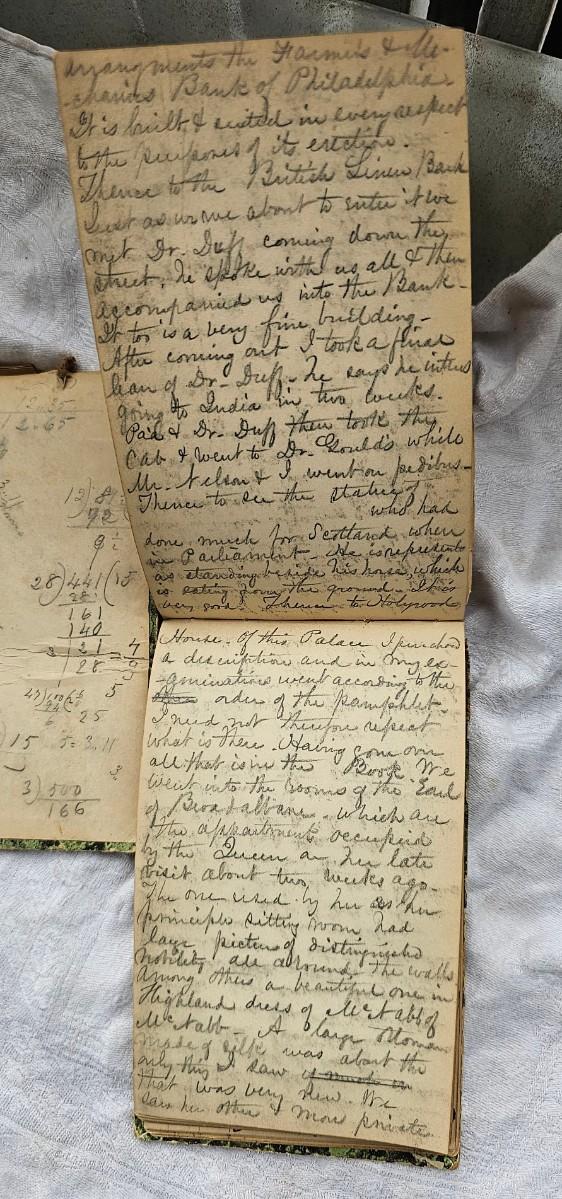 arrangments the Farmers & Me-
-chanics Bank of Philadelphia.
It is built & suited in every respect
to the purposes of its erection.
Thence to the British Linen Bank
Just as we were about to enter it we
met Dr. Duff coming down the
street, he spoke with us all & then
accompanied us into the Bank -
It too is a very fine building -
After coming out I took a final
lean of Dr. Duff - he says he intends
going to India in two weeks.
Paa & Dr. Duff then took the
Cab & went to Dr. Gould's while
Mr. Nelson & I went on pedibus -
Thence to see the statue of
who had
done much for Scotland when
in Parliament - He is represented
as standing beside his horse, which
is eating down the ground - It is
very good. Thence to Holyrood
House - Of this Palace I purchased
a description and in my ex-
-aminations went according to the
order of the pamphlet -
I need not therefore repeat
what is there. Having gone over
all that is in the Book. We
went into the rooms of the Earl
of Breadalbane - which are
the appartments occupied
by the Queen on her late
visit about two weeks ago -
The one used by her as her
principle sitting room had
large pictures of distinguished
nobility all around the walls
among others a beautiful one in
Highland dress of McNabb of
McNabb - A large Ottoman
made of silk was about the
only thing I saw
that was very new. We
saw her other & more private
12) 8
72
28) 441 (15
28
161
140
3 21 = 7
28
5
25
15 5 = 3.11
3) 500
166
2.65